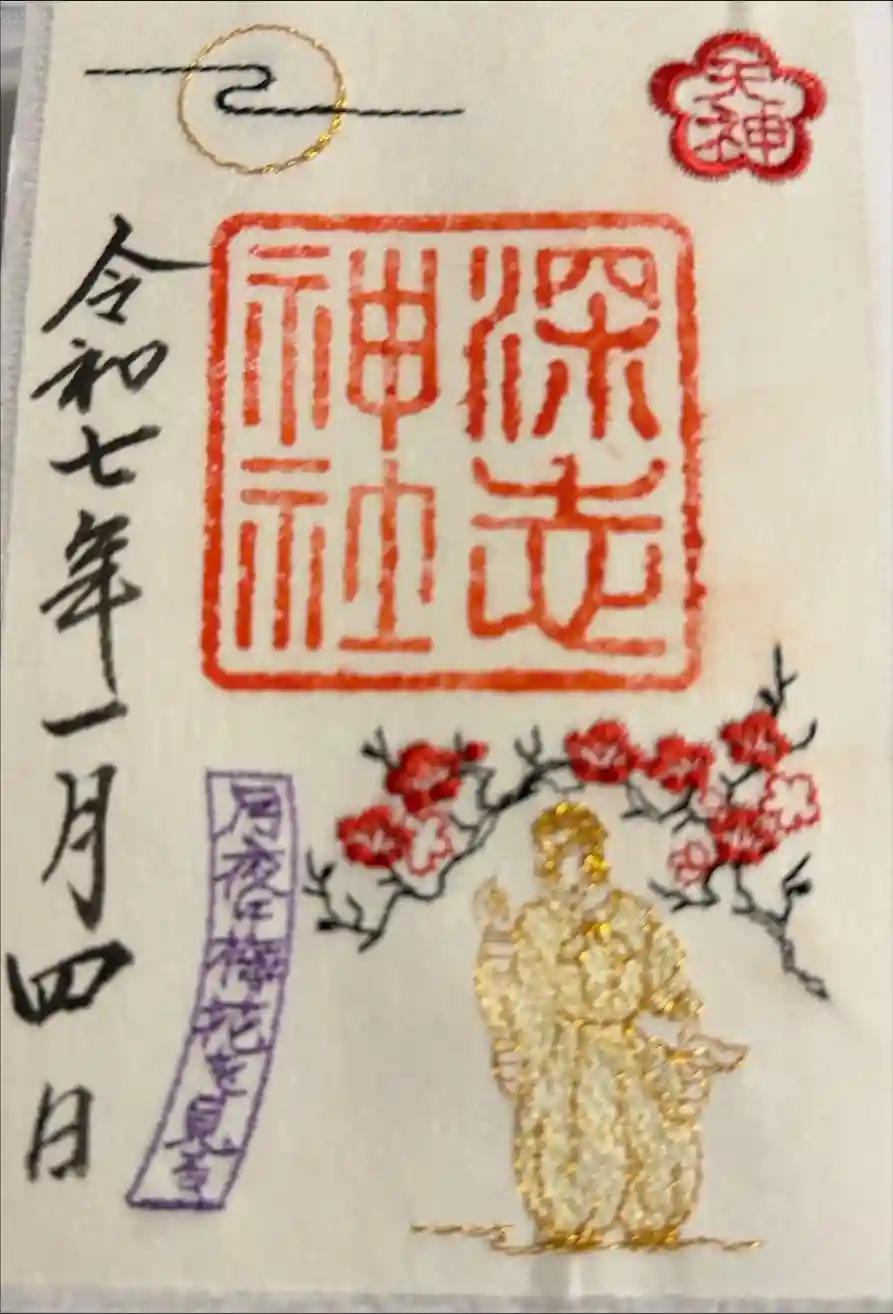 天神
深志
神社
月夜に梅花を見る
令和七年一月四日